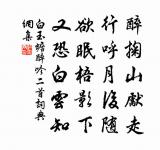 醉掬山獻走
行呼月後隨
欲眠梧影下
又恐白雲知
白玉蟾醉吟二首詞典
網集